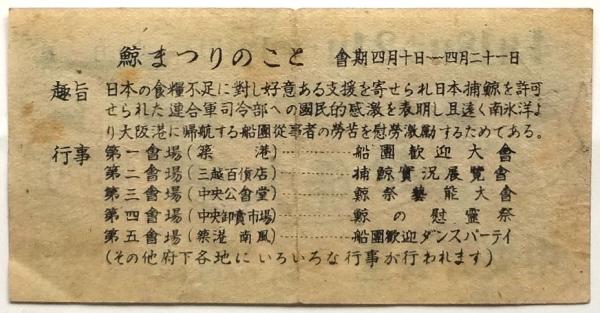 鯨まつりのこと 會期四月十日—四月二十一日
趣旨 日本の食糧不足に對し好意ある支援を寄せられ日本捕鯨を許可
せられた連合軍司令部への國民的感激を表明し且遠く南氷洋よ
り大阪港に帰航する船團従事者の勞苦を慰勞激勵するためである。
行事 第一會場(築港)………船團歡迎大會
第二會場(三越百貨店)………捕鯨實況展覽會
第三會場(中央公會堂)………鯨祭藝能大會
第四會場(中央卸賣市場)………鯨の慰靈祭
第五會場(築港 南風)………船團歡迎ダンスパーテイ
(その他府下各地にいろいろな行事が行われます)